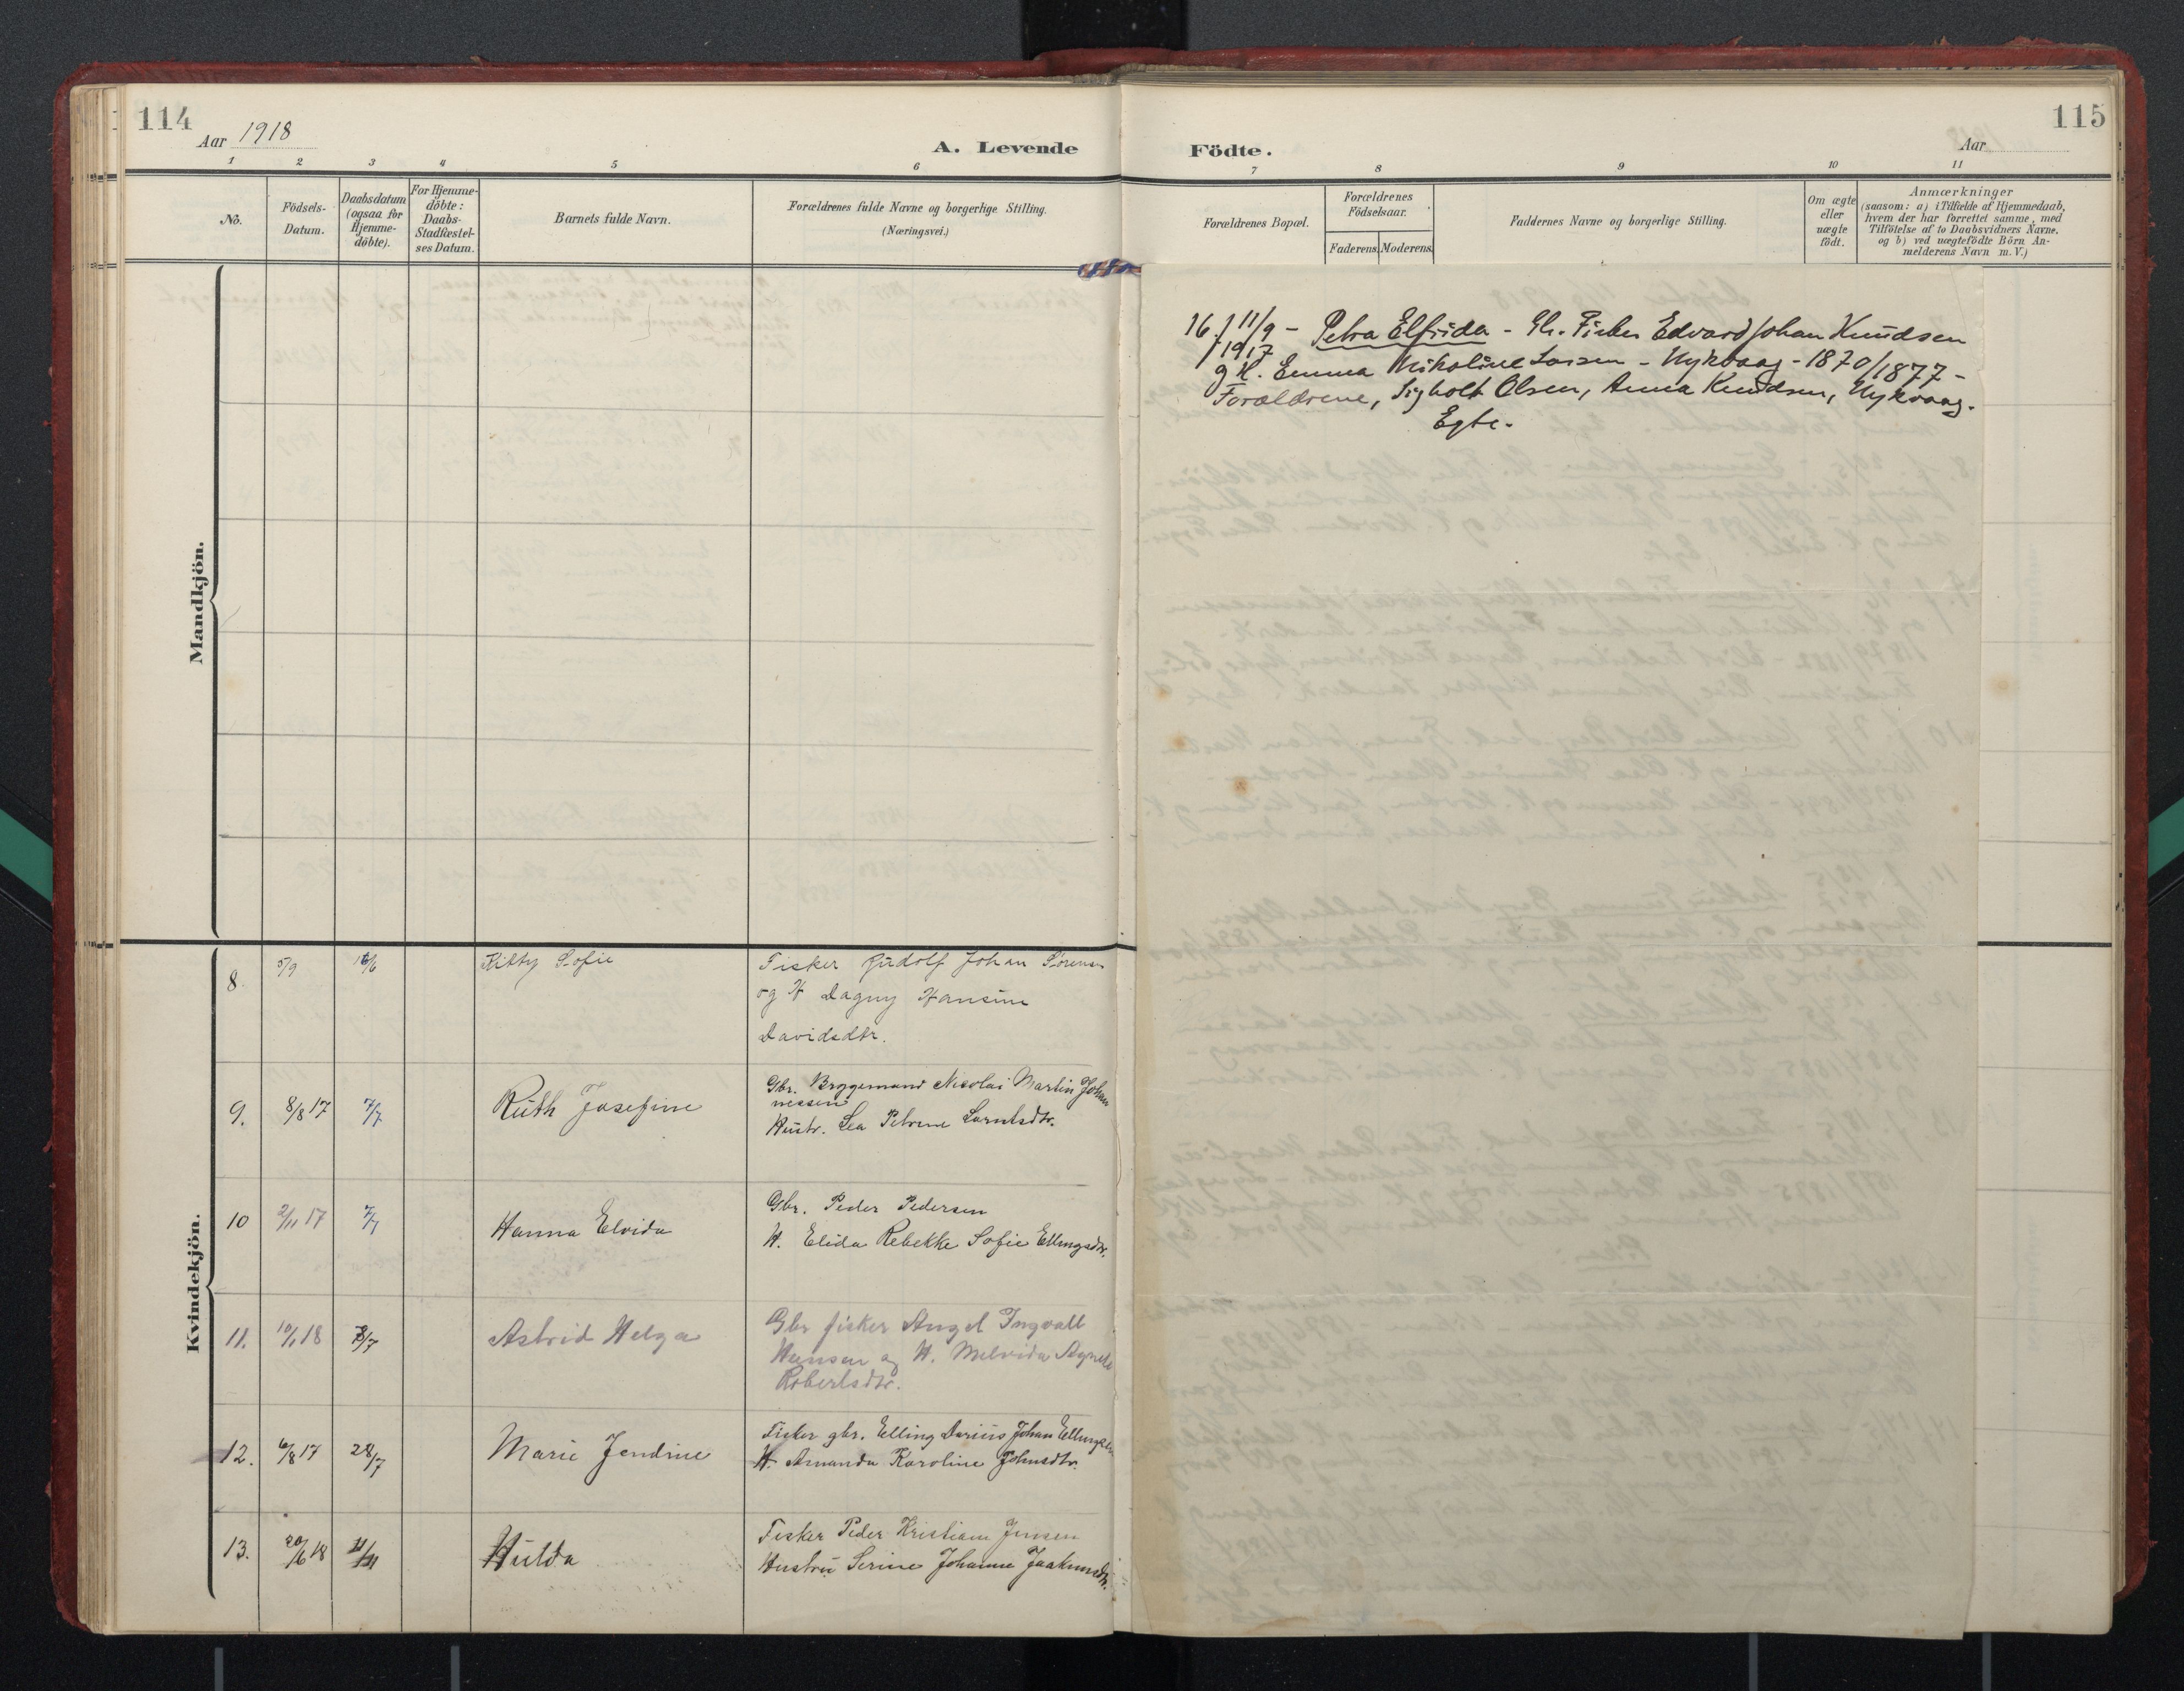 114
Aar 1918
A. Levende
1 2 3 4 5 6
No.
Födsels-
Datum.
Daabsdatum
(ogsaa for
Hjemme-
döbte).
For Hjemme-
döbte:
Daabs-
Stadfæstel-
ses Datum.
Barnets fulde Navn.
Forældrenes fulde Navne og borgerlige Stilling.
(Næringsvei.)
Mandkjön.
Kvindekjön.
8. 5/9 Kitty Sofie
Fisker Rudolf Johan Sörensen
og H Dagny Hansine
Davidsdtr.
9. 8/8 17 7/7 Ruth Josefine
Gbr. Bryggemand Nicolai Martin Johan
nessen
Hustr. Lea Petrine Larntsdtr.
10 2/11 17 7/7 Hanna Elvida
Gbr. Peder Pedersen
H. Elida Rebekke Sofie Ellingsdtr.
11. 10/1 18 Astrid Helga
Gbr fisker Angel Ingvall
Hansen og H. Melvida Agnete
Robertsdtr.
12. 6/8 17 28/7 Marie Jendine
Fisker gbr. Elling Darius Johan Ellingsen
H. Amanda Karoline Johnsdtr.
13. 20/6 18 Hulda
Fisker Peder Kristian Jensen
Hustru Serine Johanne Joakimsdtr.
115
Födte.
Aar
7 8 9 10 11
Forældrenes Bopæl.
Forældrenes
Födselsaar.
Faderens. Moderens.
Faddernes Navne og borgerlige Stilling.
Om ægte
eller
uægte
födt.
Anmærkninger
(saasom: a) i Tilfælde af Hjemmedaab,
hvem der har forrettet samme, med
Tilföielse af to Daabsvidners Navne,
og b) ved uægtefödte Börn An-
melderens Navn m. V.)
16. f 11/9 - Petra Elfrida - Gb. Fisker Edvard Johan Knudsen
1917
g H. Emma Nikoline Larsen - Nykvaag - 1870/1877 -
Forældrene, Sigholt Olsen, Anna Knudsen, Nykvaag.
Egte.